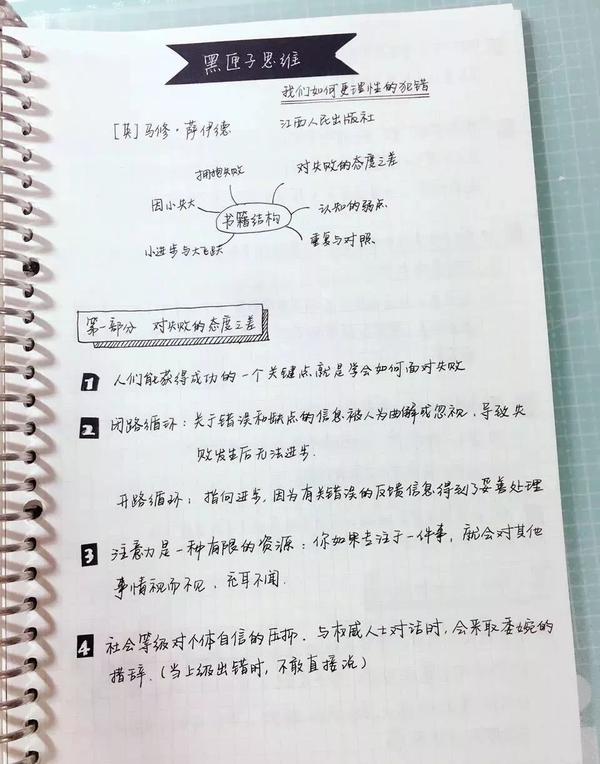 黑匣子思维
我们如何更理性的犯错
[英]马修·萨伊德 江西人民出版社
拥抱失败 对失败的态度之差
因小失大 认知的弱点
书籍结构
小进步与大飞跃 重复与对照
第一部分 对失败的态度之差
1 人们能获得成功的一个关键点就是学会如何面对失败
2 闭路循环:关于错误和缺点的信息被人为曲解或忽视,导致失
败发生后无法进步.
开路循环:指向进步,因为有关错误的反馈信息得到了妥善处理
3 注意力是一种有限的资源:你如果专注于一件事,就会对其他
事情视而不见,充耳不闻.
4 社会等级对个体自信的压抑.与权威人士对话时,会采取委婉的
措辞.(当上级出错时,不敢直接说)